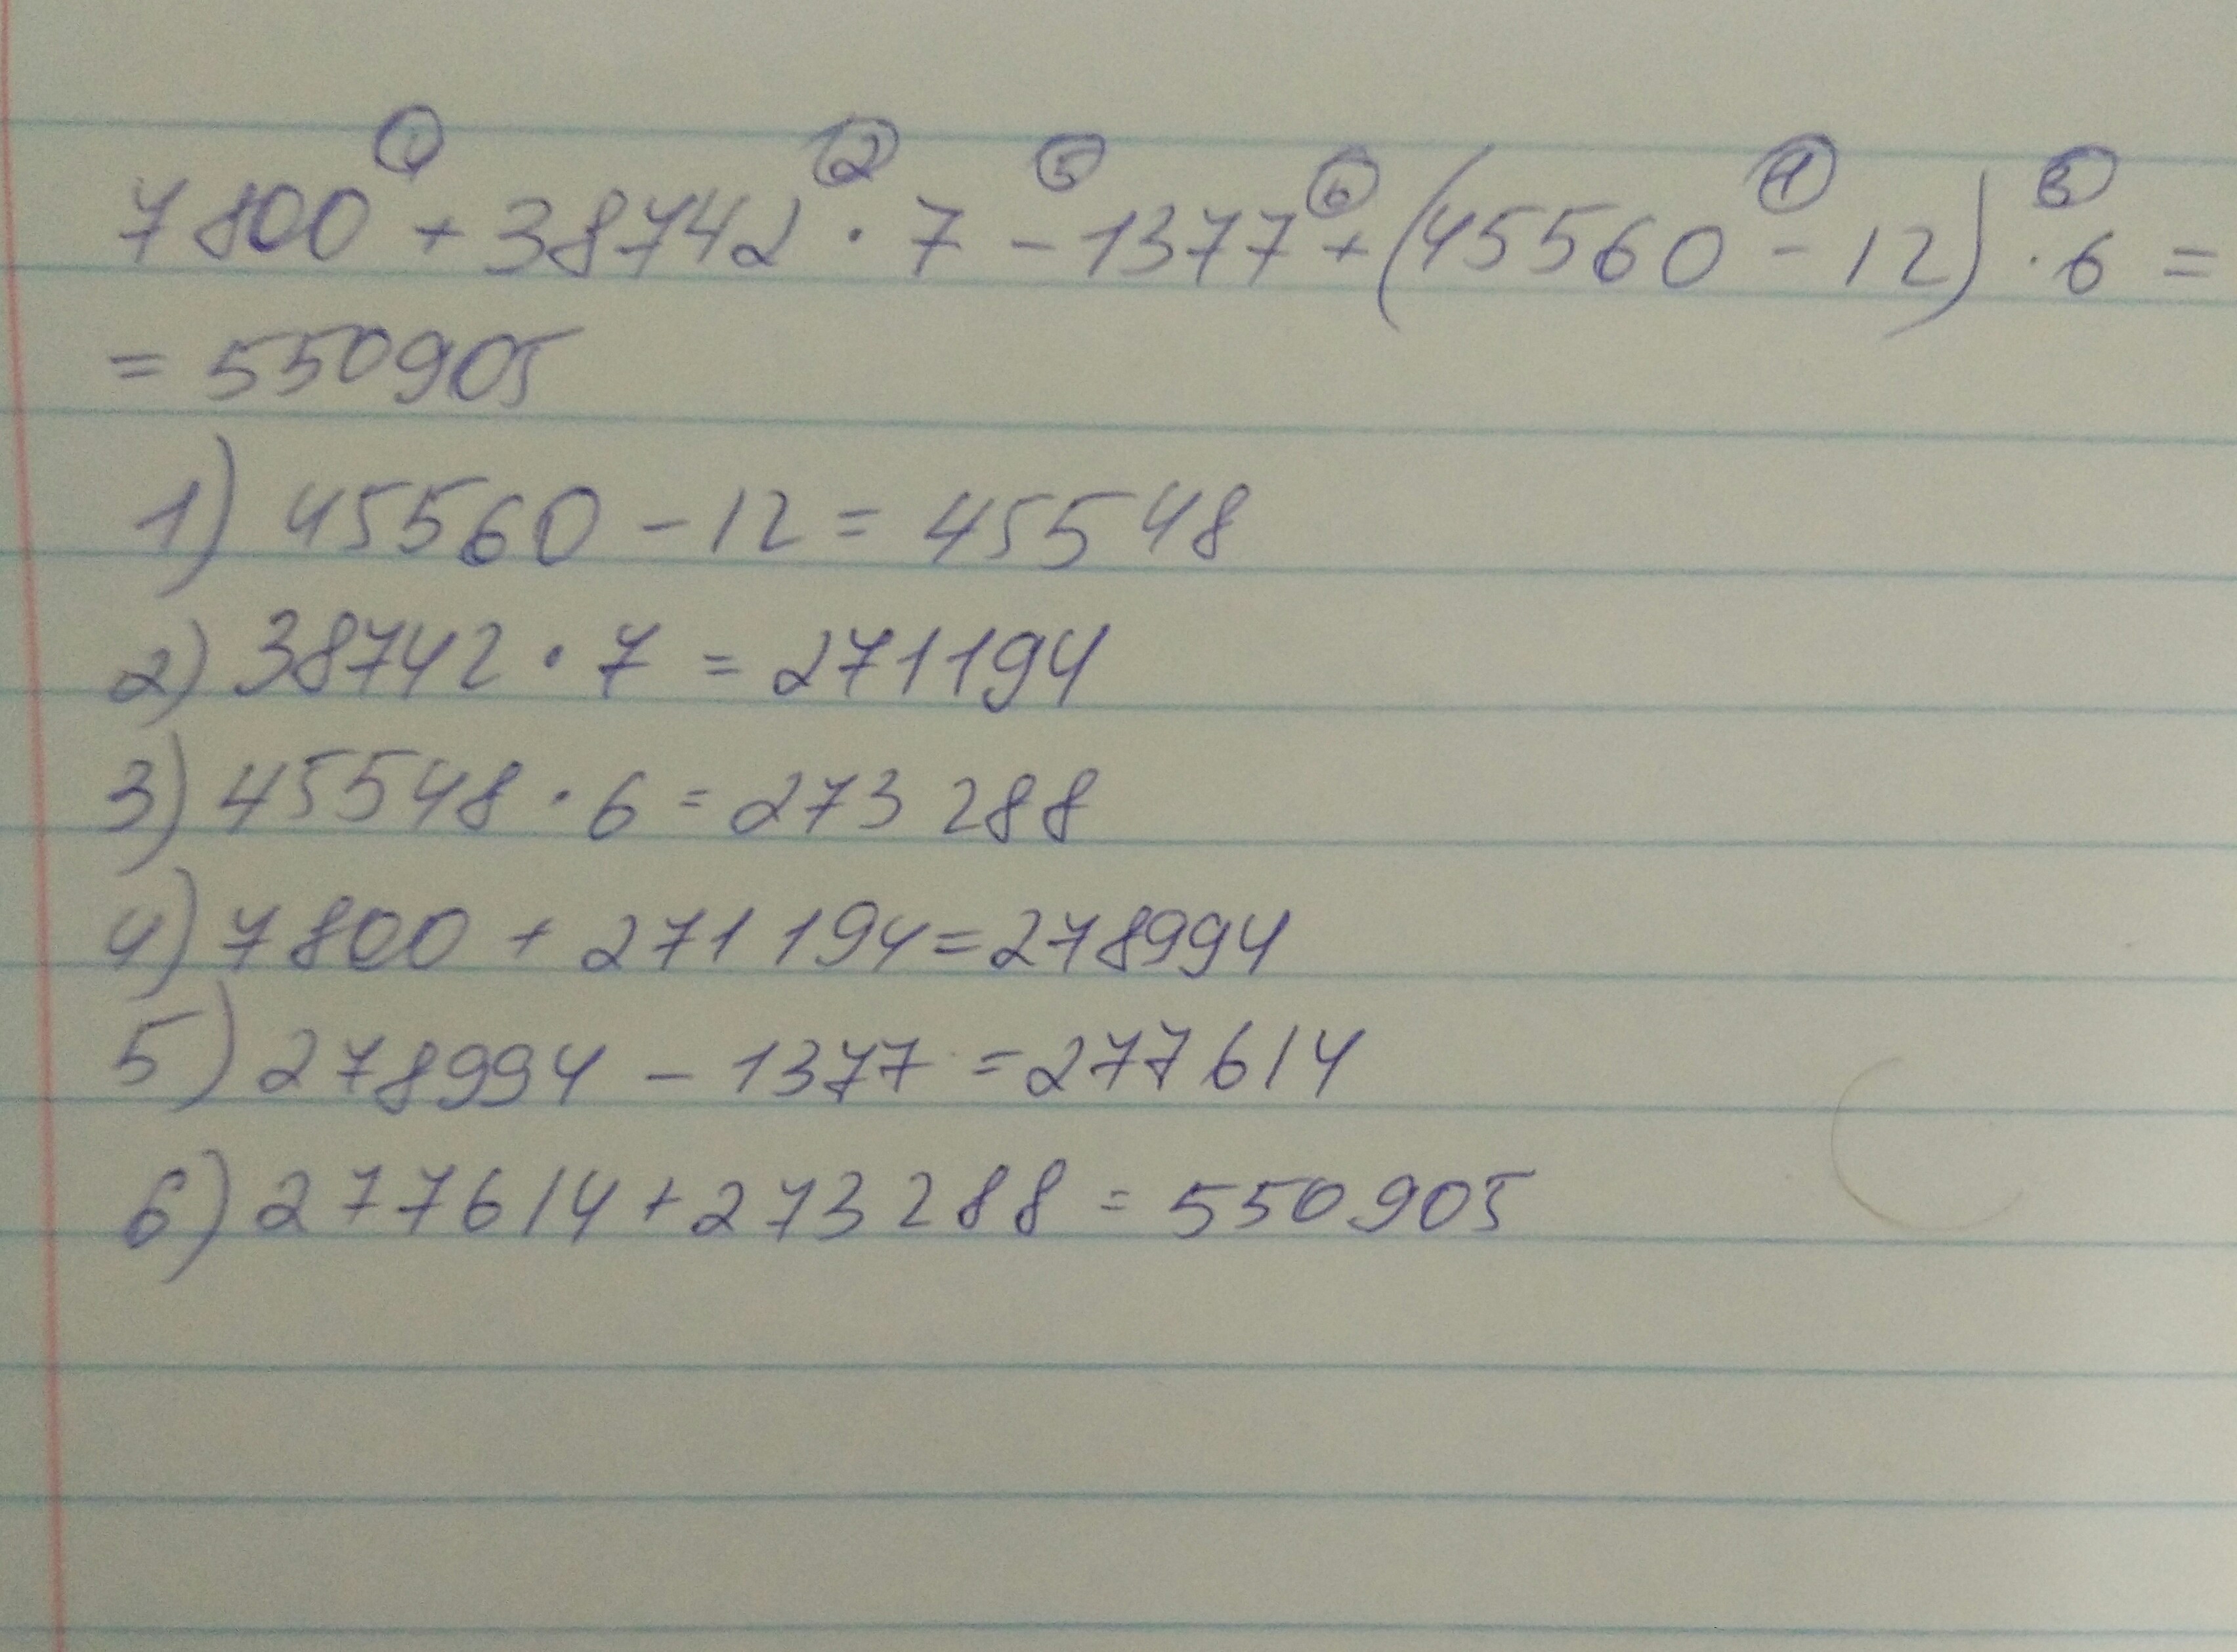 ④ ② ⑤ ⑥ ① ③
7800 + 38742 · 7 - 1377 + (45560 - 12) · 6 =
= 550905
1) 45560 - 12 = 45548
2) 38742 · 7 = 271194
3) 45548 · 6 = 273 288
4) 7800 + 271 194 = 278994
5) 278994 - 1377 = 277614
6) 277614 + 273 288 = 550905